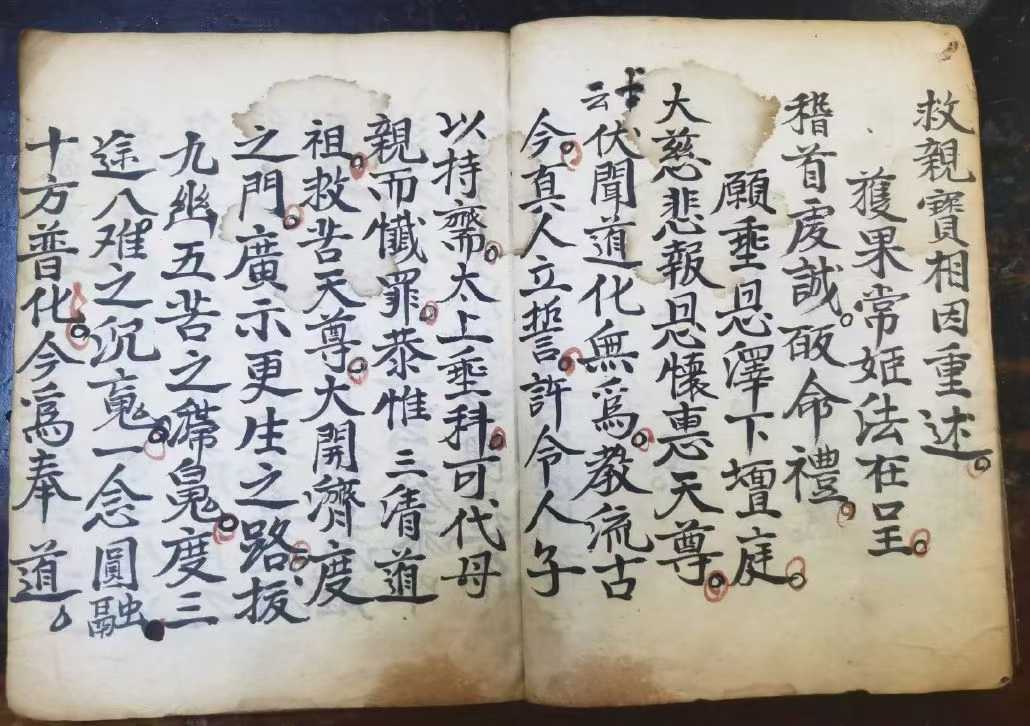 救親寶相因重述
獲果常姫法在呈
稽首虔誠皈命禮
願垂恩澤下壇庭
大慈悲報恩懷惠天尊
云伏聞道化無爲教流古
今真人立誓許令人子
以持齋太上垂科可代母
親而懺罪恭惟三清道
祖救苦天尊大開濟度
之門廣示更生之路拔
九幽五苦之滯鬼度三
途八难之沉魂一念圓融
十方普化今爲奉道